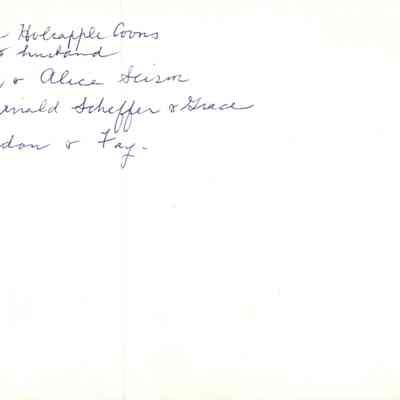 Holsapple Coons
& husband
& Alice Scism
Scheffer & Grace
& Fay.